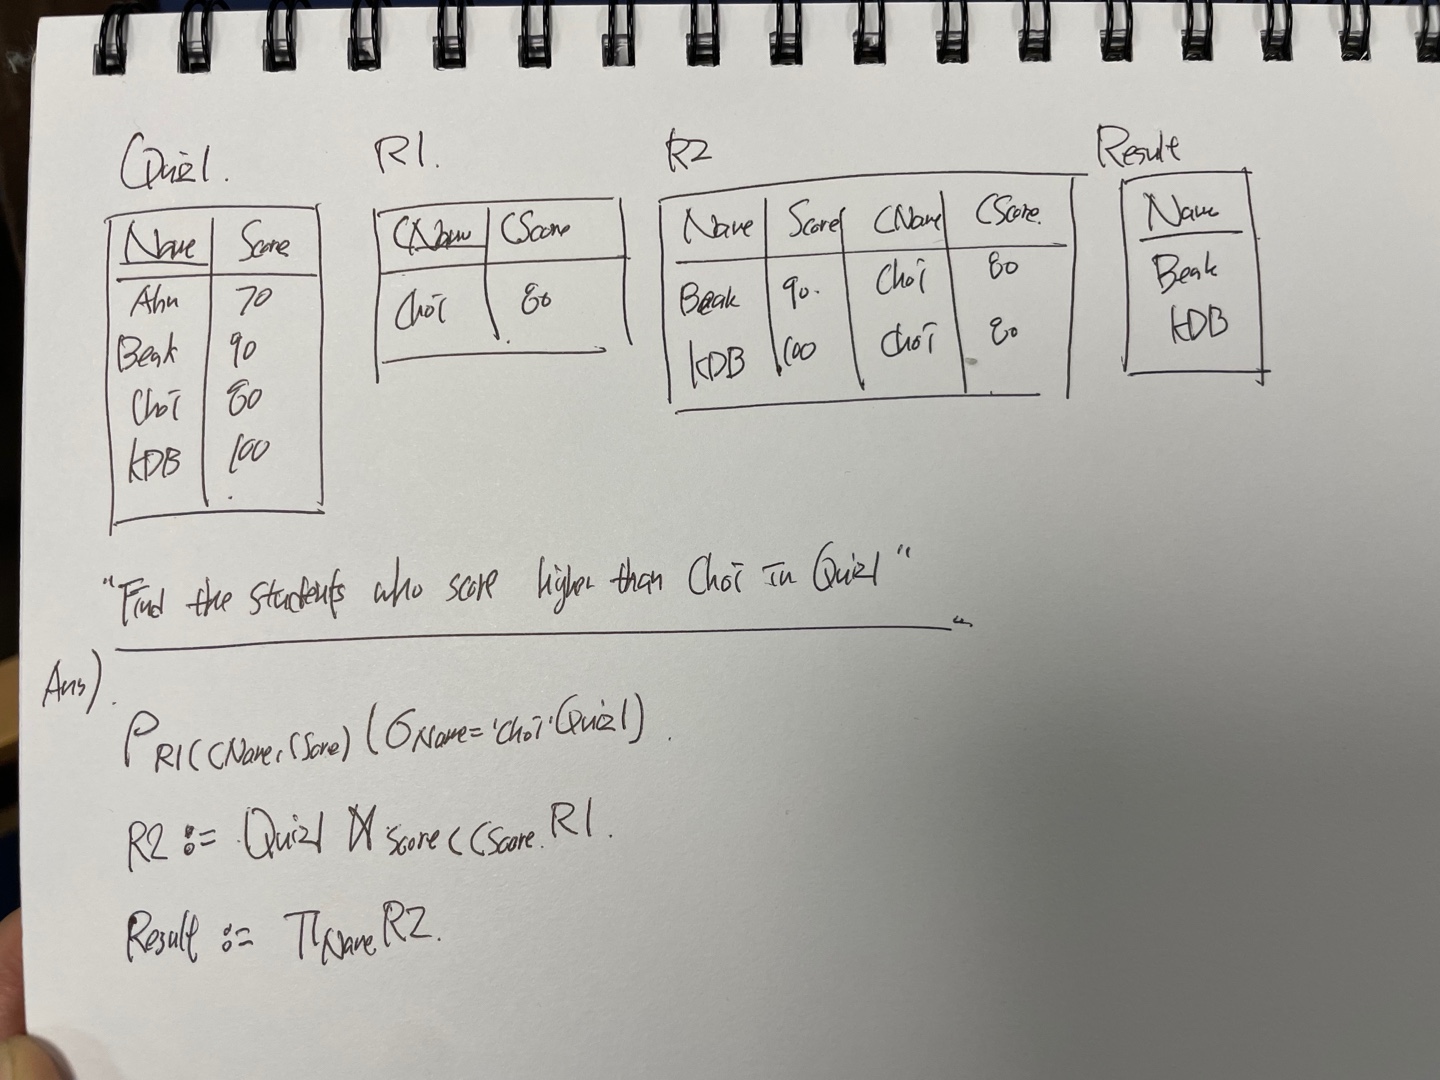 Quiz1.
Name Score
Ahn 70
Beak 90
Choi 80
KDB 100
R1.
CName CScore
Choi 80
R2
Name Score CName CScore
Beak 90. Choi 80
KDB 100 Choi 80
Result
Name
Beak
KDB
"Find the students who score higher than Choi in Quiz1"
Ans).
ρ R1(CName, CScore) (σ Name='Choi' Quiz1).
R2 := Quiz1 ⋈ Score < CScore R1.
Result := π Name R2.